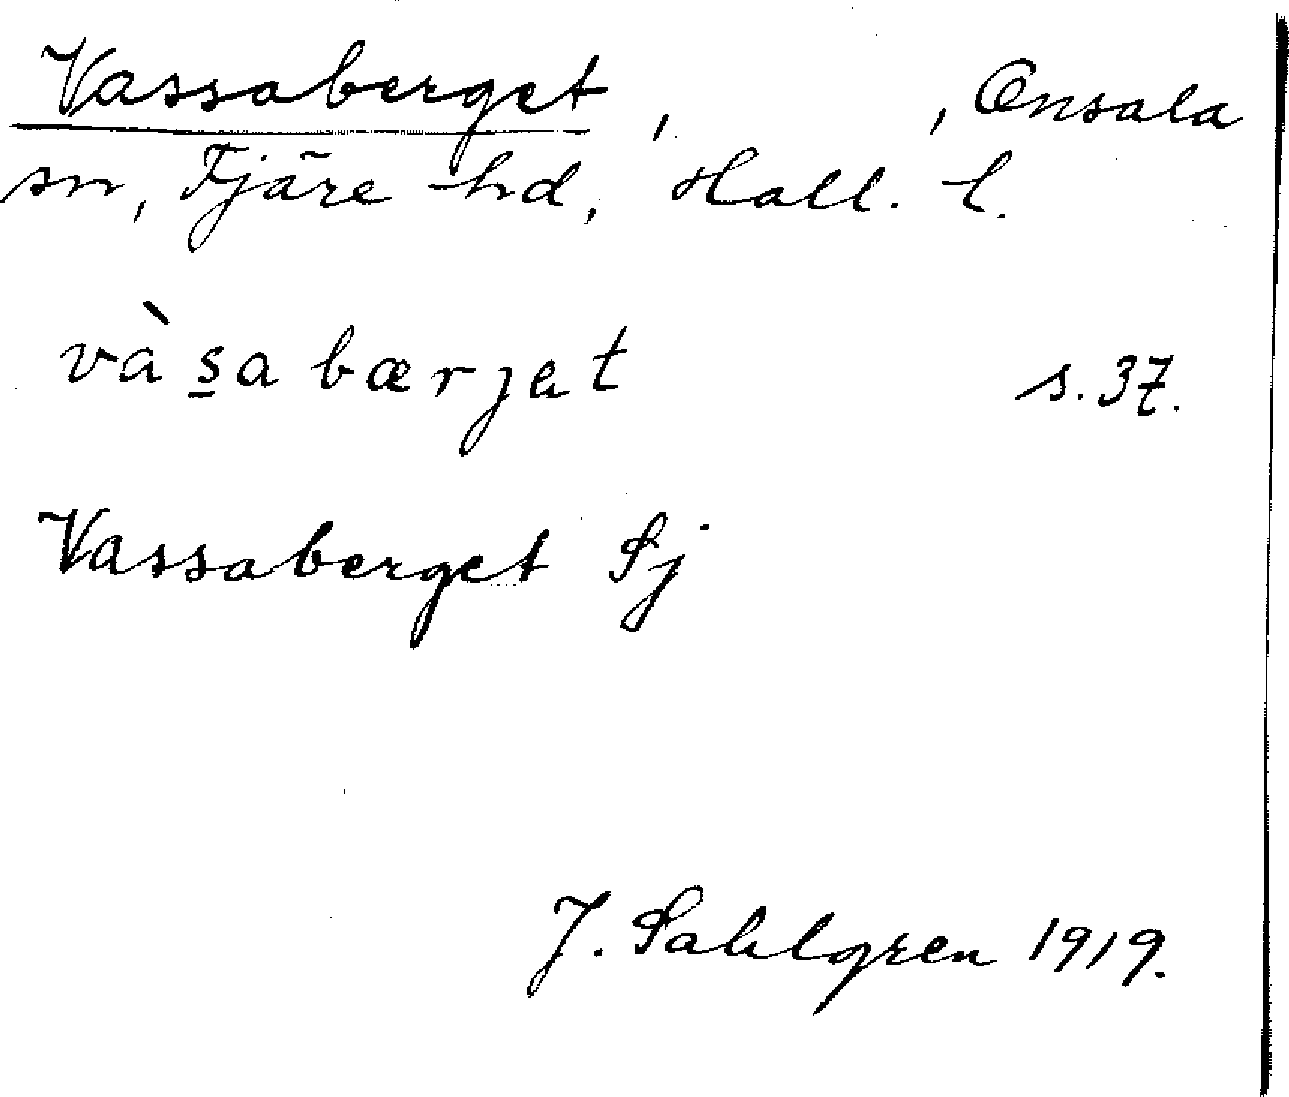 Vassaberget, , Onsala
sn, Fjäre hd, Hall. l.
vàs̲a bærjet s. 37.
Vassaberget Sj
J. Sahlgren 1919.